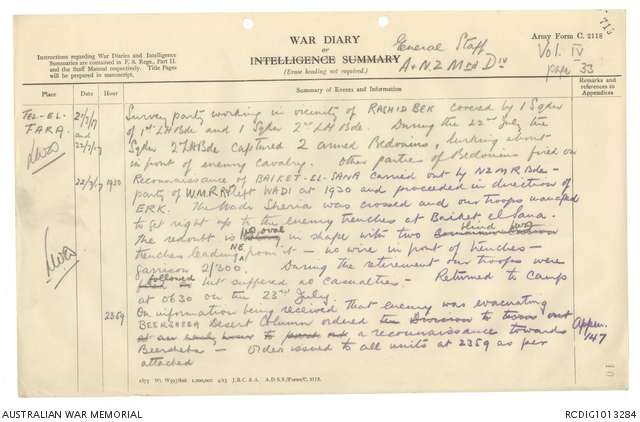 WAR DIARY
OR
INTELLIGENCE SUMMARY
(Erase heading not required.)
Instructions regarding War Diaries and Intelligence
Summaries are contained in F. S. Regs., Part II.
and the Staff Manual respectively. Title Pages
will be prepared in manuscript.
General Staff
A & NZ Mtd Div
Army Form C. 2118
Vol. IV
33
713
Place
Date
Hour
Summary of Events and Information
Remarks and
references to
Appendices
TEL-EL-
FARA.
21/7/17
22/7/17
Survey party working in vicinity of RASHID BEK covered by 1 Sqdn
of 1st LH Bde and 1 Sqdn 2nd LH Bde. During the 22nd July the
Sqdn 2 LH Bde captured 2 armed Bedouins, lurking about
in front of enemy cavalry. Other parties of Bedouins fired on
22/7/17 1930 Reconnaissance of BAIKET-EL-SANA carried out by NZMR Bde -
party of W.M.R. Rgt left WADI at 1930 and proceeded in direction of
ERK. The Wadi Sheria was crossed and our troops managed
to get right up to the enemy trenches at Baiket el Sana.
The redoubt is oval in shape with two blind
trenches leading NE from it - no wire in front of trenches -
garrison 2/300. During the retirement our troops were
followed but suffered no casualties - Returned to camp
at 0630 on the 23rd July.
2359 On information being received that enemy was evacuating
BEERSHEBA Desert Column ordered the Division to turn out
a reconnaissance towards
Beersheba - Orders issued to all units at 2359 as per
attached
Appen.
147
1875 Wt. W593/826 1,000,000 4/15 J.B.C. & A. A.D.S.S./Forms/C. 2118.
AUSTRALIAN WAR MEMORIAL
RCDIG1013284